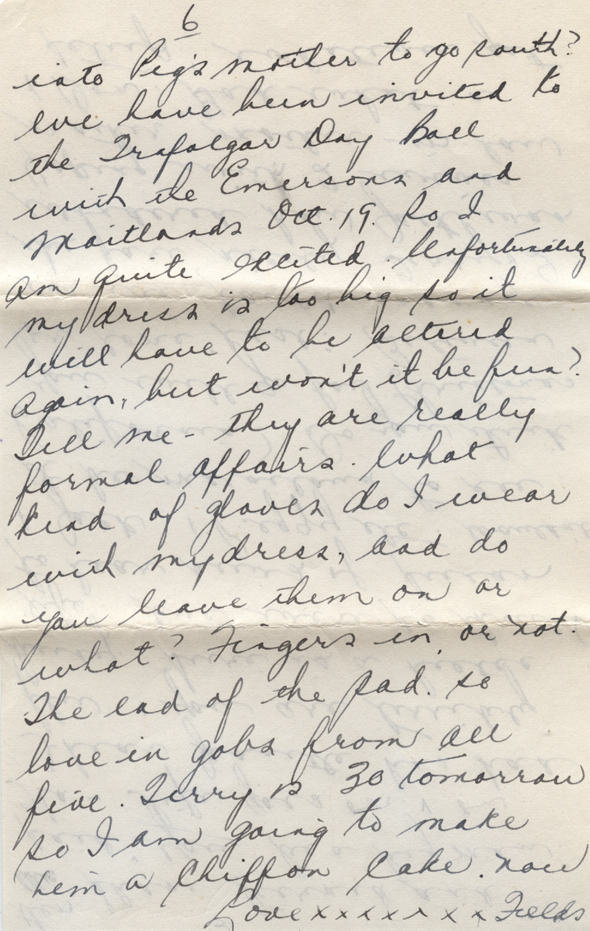 6
into Pig's mother to go south?
We have been invited to
the Trafalgar Day Ball
with the Emersons and
Maitlands Oct. 19. So I
am quite excited. Unfortunately
my dress is too big so it
will have to be altered
again, but won't it be fun?
Tell me - they are really
formal affairs. What
kind of gloves do I wear
with my dress, and do
you leave them on or
what? Fingers in, or not.
The end of the pad. so
love in gobs from all
five. Terry is 30 tomorrow
so I am going to make
him a Chiffon Cake. now
Love x x x x x x x Fields